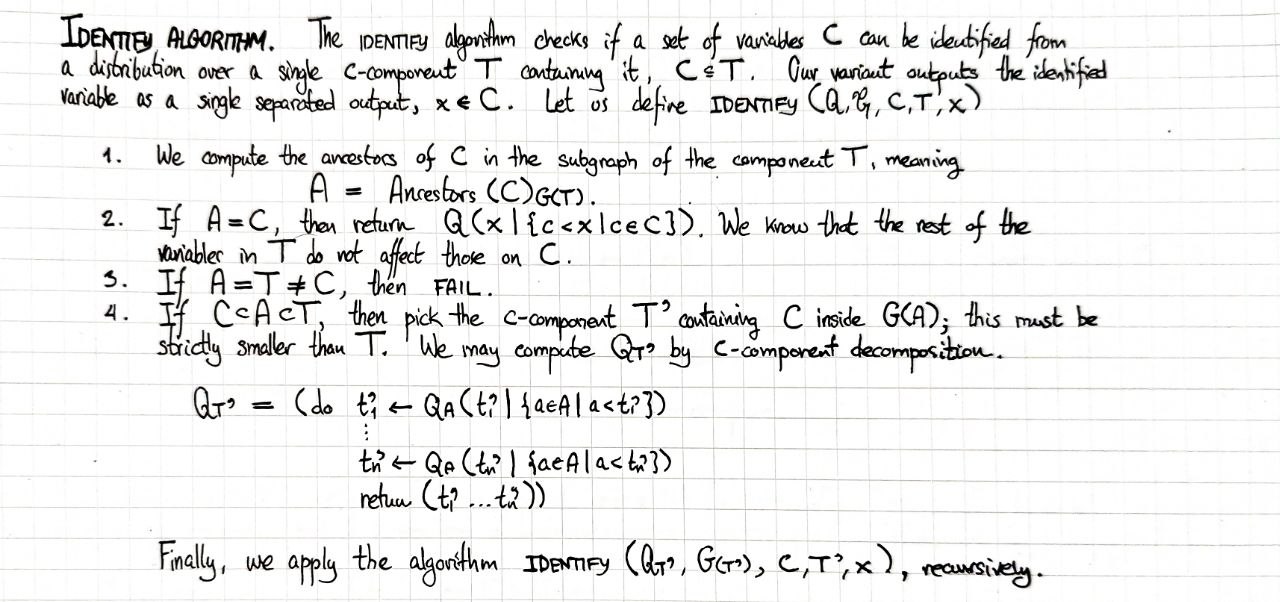 IDENTIFY ALGORITHM. The IDENTIFY algorithm checks if a set of variables C can be identified from
a distribution over a single c-component T containing it, C ⊆ T. Our variant outputs the identified
variable as a single separated output, x ∈ C. Let us define IDENTIFY (Q, G, C, T, x)
1. We compute the ancestors of C in the subgraph of the component T, meaning
A = Ancestors (C)G(T).
2. If A = C, then return Q(x | {c < x | c ∈ C}). We know that the rest of the
variables in T do not affect those on C.
3. If A = T ≠ C, then FAIL.
4. If C ⊂ A ⊂ T, then pick the c-component T' containing C inside G(A); this must be
strictly smaller than T. We may compute QT' by C-component decomposition.
QT' = (do t'1 ← QA (t'1 | {a∈A | a < t'1})
⋮
t'n ← QA (t'n | {a∈A | a < t'n})
return (t'1 ... t'n))
Finally, we apply the algorithm IDENTIFY (QT', G(T'), C, T', x), recursively.